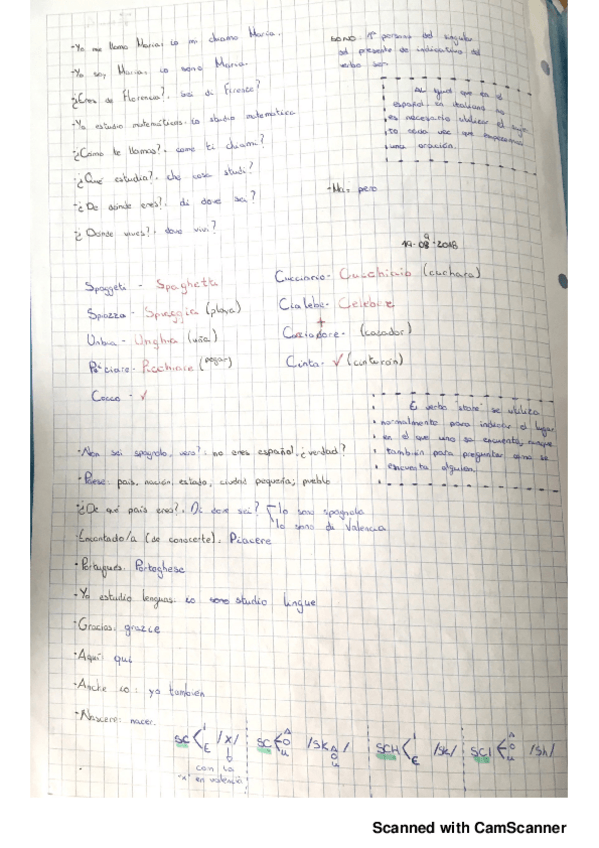 - Yo me llamo Maria: io mi chiamo Maria.
- Yo soy Maria: io sono Maria.
- ¿Eres de Florencia?: sei di Firenze?
- Yo estudio matemáticas: io studio matematica
¿Cómo te llamas?: come ti chiami?
- ¿Qué estudia?: che cosa studi?
- ¿De dónde eres?: di dove sei?
¿Dónde vives?: dove vivi?
SONO: 1ª persona del singular
del presente de indicativo del
verbo ser.
Al igual que en el
español, en italiano no
es necesario utilizar el suje
to cada vez que hagamos
una oración.
- Ma: pero
19-09-2018
Spaggeti - Spaghetti
Spazza - Spiaggia (playa)
Unbia - Unghia (uña)
Picciare - Picchiare (pegar)
Cocco - ✓
Cucciario - Cucchiaio (cuchara)
Cialebe - Celebre
Cacciadore - (cazador)
Cinta - ✓ (cinturón)
El verbo "stare" se utiliza
normalmente para indicar el lugar
en el que uno se encuentra, aunque
también para preguntar cómo se
encuentra alguien.
- Non sei spagnolo, vero?: no eres español, ¿verdad?
- Paese: país, nación, estado, ciudad pequeña; pueblo
- ¿De qué país eres?: Di dove sei? Io sono spagnola
Io sono di Valencia
- Encantado/a (de conocerte): Piacere
- Portugués: Portoghese
- Yo estudio lenguas: io sono studio lingue
- Gracias: grazie
- Aquí: qui
- Anche io: yo también
- Nascere: nacer.
SC I E /X/
con la
"x" en valencià
SC A O U /SK A O U/
SCH I E /SK/
SCI A O U /Sh/
Scanned with CamScanner